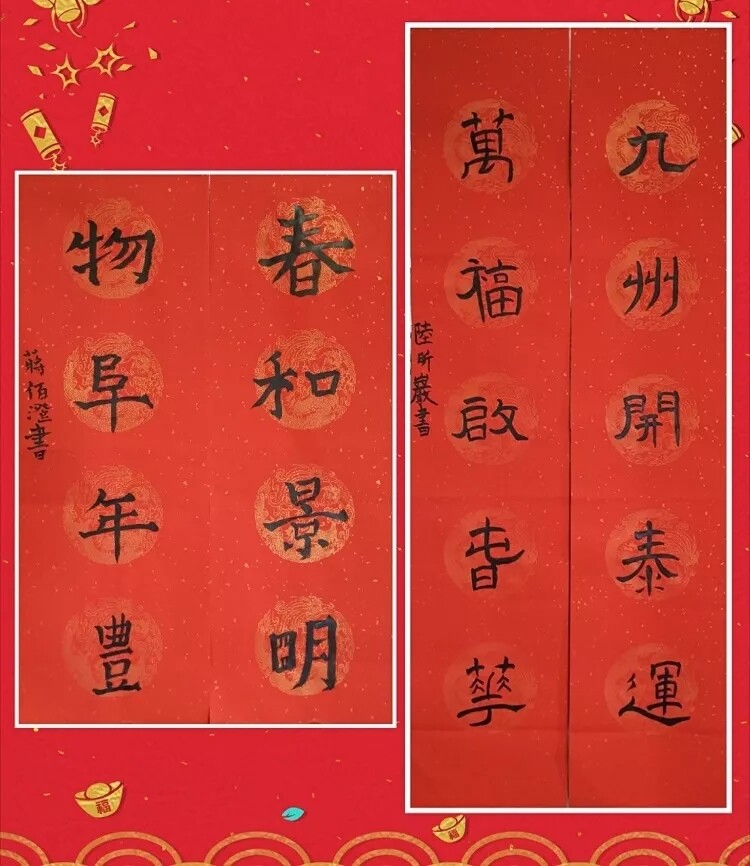 九州開泰運
萬福啟旾華
陸昕巖書
春和景明
物阜年豊
蔣佰澄書
福
福